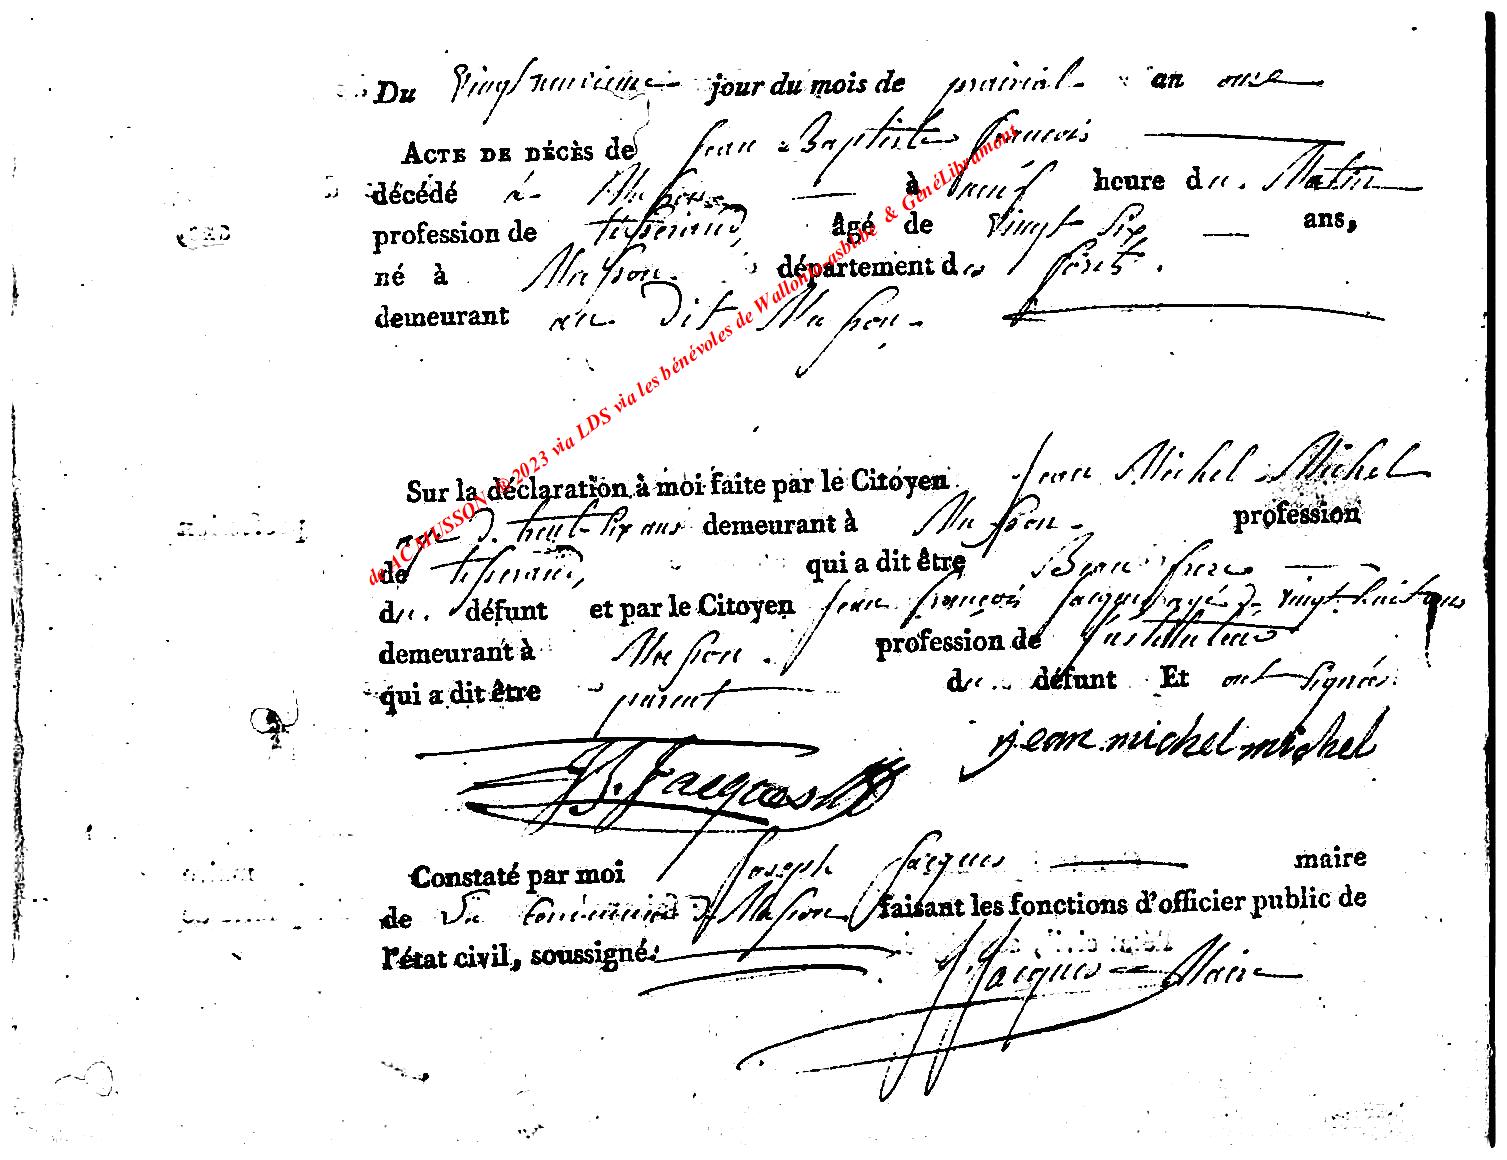 Du Vingt neuvieme jour du mois de prairial an onse
ACTE DE DÉCÈS de Jean Baptiste françois
décédé à Musson à neuf heure du Matin
profession de tisserand, âgé de Vingt six ans,
né à Musson département des forêts.
demeurant au dit Musson.
Sur la déclaration à moi faite par le Citoyen Jean Michel Michel
agé d. trent six ans demeurant à Musson. profession
de tisserand, qui a dit être Beau frere
du. défunt et par le Citoyen jean françois jacques agé d. vingt huit ans
demeurant à Musson. profession de instituteur
qui a dit être parent du défunt Et ont signés.
jean michel michel
Jacques
Constaté par moi Joseph Jacques maire
de La Commune d. Musson faisant les fonctions d'officier public de
l'état civil, soussigné.
J Jacques Maire
de AC MUSSON ©2023 via LDS via les bénévoles de Wallonia-asbl.be & GénéLibramont